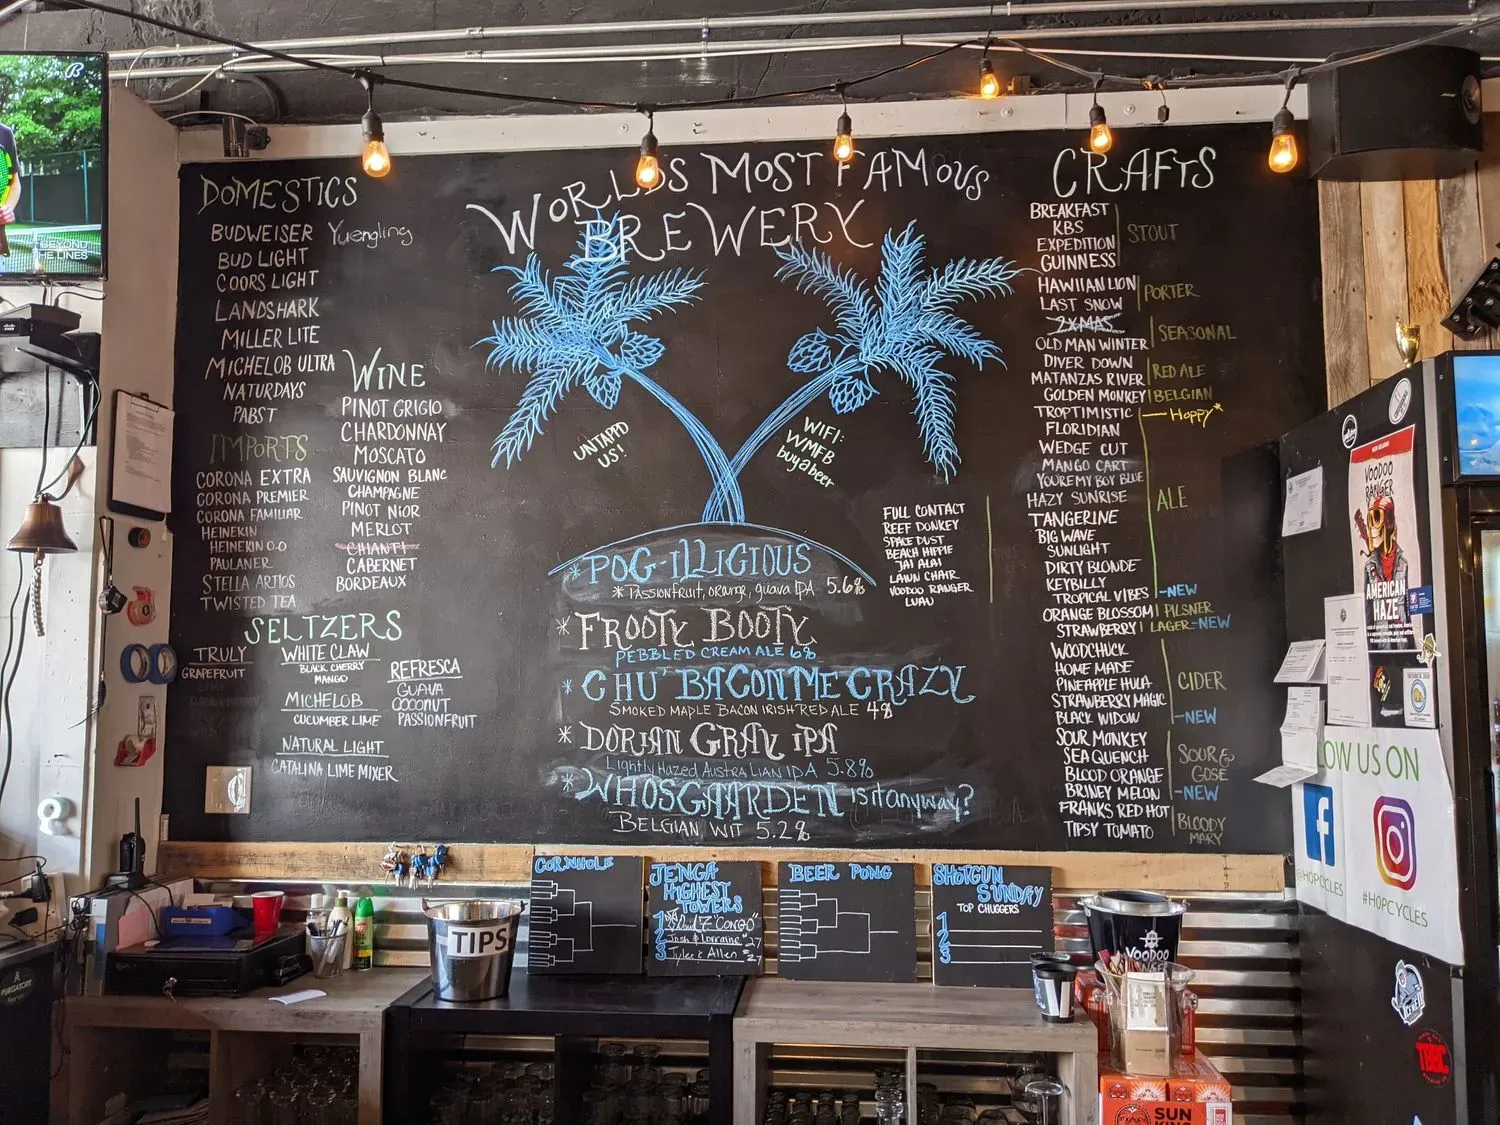 BEYOND
THE LINES
WORLDS MOST FAMOUS
BREWERY
DOMESTICS
BUDWEISER Yuengling
BUD LIGHT
COORS LIGHT
LANDSHARK
MILLER LITE
MICHELOB ULTRA
NATURDAYS
PABST
IMPORTS
CORONA EXTRA
CORONA PREMIER
CORONA FAMILIAR
HEINEKIN
HEINEKIN 0.0
PAULANER
STELLA ARTIOS
TWISTED TEA
WINE
PINOT GRIGIO
CHARDONNAY
MOSCATO
SAUVIGNON BLANC
CHAMPAGNE
PINOT NIOR
MERLOT
CHIANTI
CABERNET
BORDEAUX
SELTZERS
TRULY
GRAPEFRUIT
WHITE CLAW
BLACK CHERRY
MANGO
MICHELOB
CUCUMBER LIME
NATURAL LIGHT
CATALINA LIME MIXER
REFRESCA
GUAVA
COCONUT
PASSIONFRUIT
UNTAPPD
US!
WIFI:
WMFB
buyabeer
*POG-ILLIGIOUS
*PASSIONFRUIT, ORANGE, guava IPA 5.6%
*FROOTY BOOTY
PEBBLED CREAM ALE 6%
*CHU' BACON ME CRAZY
SMOKED MAPLE BACON IRISH RED ALE 4%
*DORIAN GRAY IPA
Lightly Hazed AUSTRALIAN IPA 5.8%
*WHOSGAARDEN is it anyway?
BELGIAN WIT 5.2%
FULL CONTACT
REEF DONKEY
SPACE DUST
BEACH HIPPIE
JAI ALAI
LAWN CHAIR
VOODOO RANGER
LUAU
CRAFTS
BREAKFAST
KBS
EXPEDITION
GUINNESS
STOUT
HAWIIAN LION
LAST SNOW
PORTER
2XMAS
OLD MAN WINTER
SEASONAL
DIVER DOWN
MATANZAS RIVER
RED ALE
GOLDEN MONKEY
BELGIAN
TROPTIMISTIC
Hoppy*
FLORIDIAN
WEDGE CUT
MANGO CART
YOUREMY BOY BLUE
HAZY SUNRISE
TANGERINE
BIG WAVE
SUNLIGHT
DIRTY BLONDE
KEYBILLY
TROPICAL VIBES
ALE
-NEW
ORANGE BLOSSOM
PILSNER
STRAWBERRY
LAGER -NEW
WOODCHUCK
HOME MADE
PINEAPPLE HULA
STRAWBERRY MAGIC
BLACK WIDOW
CIDER
-NEW
SOUR MONKEY
SEA QUENCH
BLOOD ORANGE
BRINEY MELON
SOUR &
GOSE
-NEW
FRANKS RED HOT
TIPSY TOMATO
BLOODY
MARY
VOODOO
RANGER
AMERICAN
HAZE
LOW US ON
@HOPCYCLES
#HOPCYCLES
TIPS
CORNHOLE
JENGA
HIGHEST
TOWERS
1 "CONGO"
2 Josh & Lorraine 27
3 Tyler & Allen 27
BEER PONG
SHOTGUN
SUNDAY
TOP CHUGGERS
1
2
3
VOODOO
PURGATORY
SUN